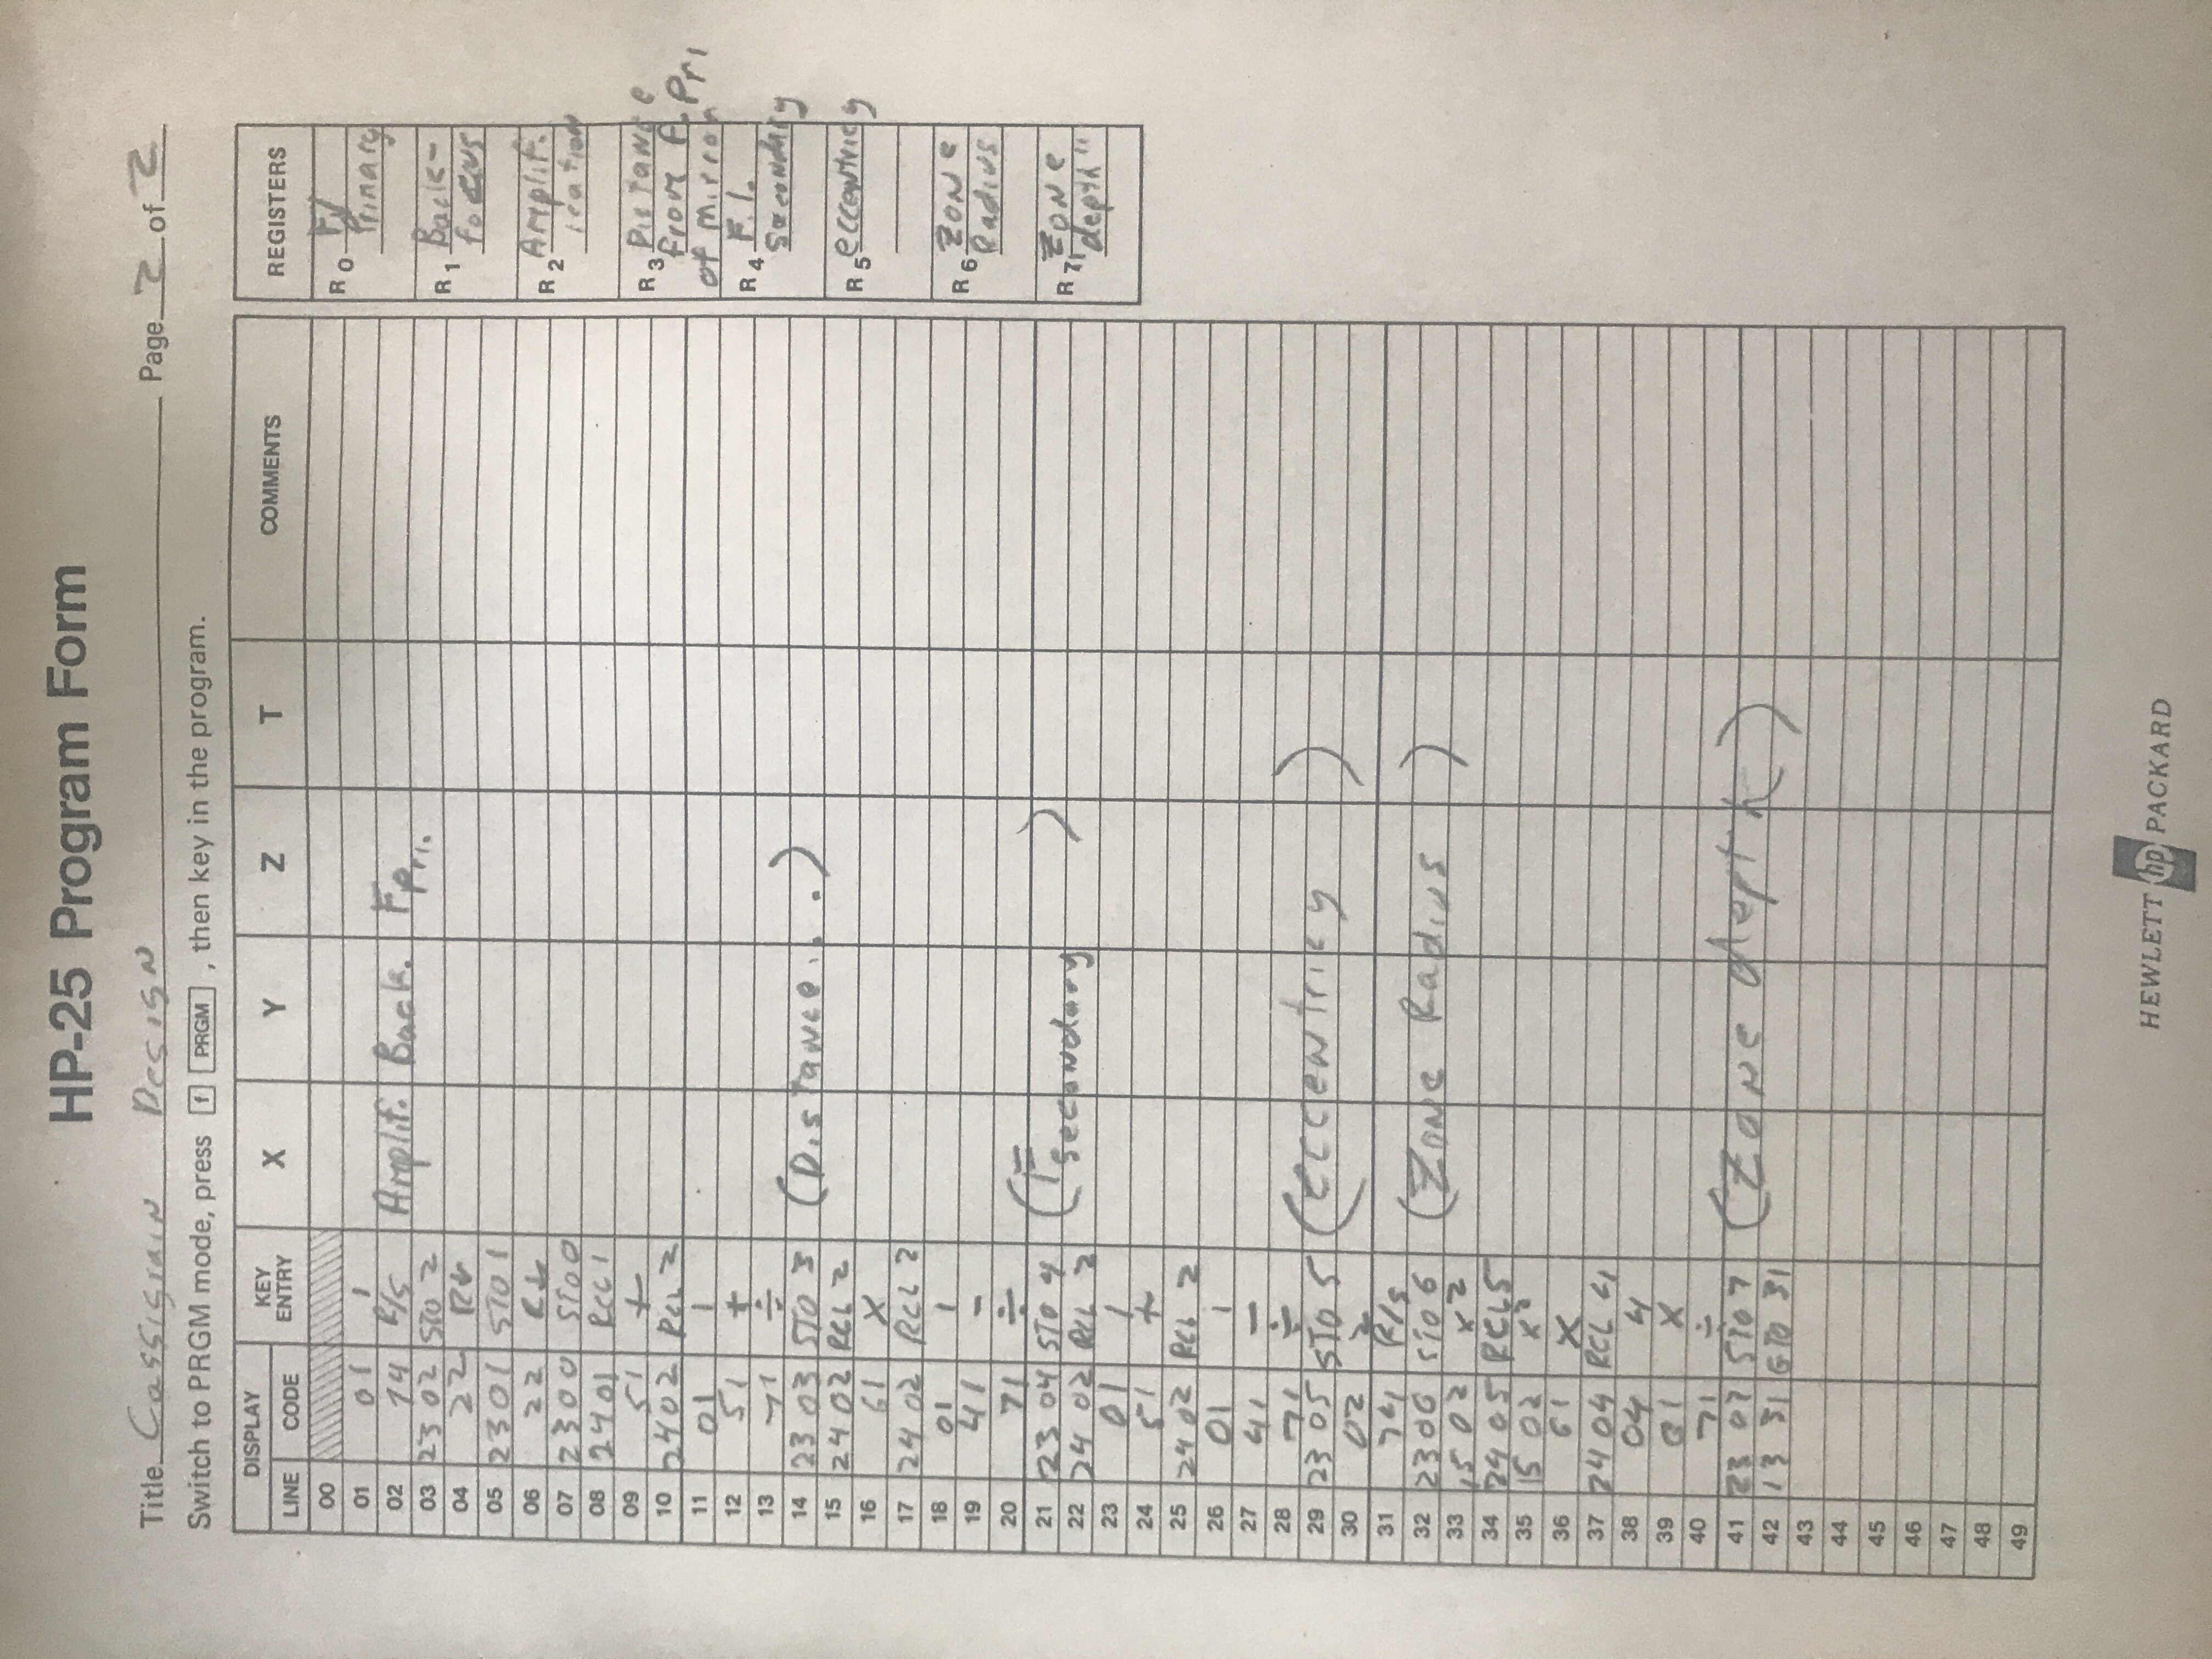 HP-25 Program Form
Title Cassigrain Design Page 2 of 2
Switch to PRGM mode, press f PRGM , then key in the program.
DISPLAY KEY ENTRY X Y Z T COMMENTS
LINE CODE
00
01 01 1
02 74 R/S Amplif. Back. F Pri.
03 23 02 STO 2
04 22 R↓
05 23 01 STO 1
06 22 R↓
07 23 00 STO 0
08 24 01 RCL 1
09 51 +
10 24 02 RCL 2
11 01 1
12 51 +
13 71 ÷
14 23 03 STO 3 (Distance...)
15 24 02 RCL 2
16 61 X
17 24 02 RCL 2
18 01 1
19 41 -
20 71 ÷
21 23 04 STO 4 (F secondary)
22 24 02 RCL 2
23 01 1
24 51 +
25 24 02 RCL 2
26 01 1
27 41 -
28 71 ÷
29 23 05 STO 5 (eccentricy)
30 02 2
31 74 R/S
32 23 06 STO 6 (Zone Radius)
33 15 02 x2
34 24 05 RCL 5
35 15 02 x2
36 61 X
37 24 04 RCL 4
38 04 4
39 61 X
40 71 ÷
41 23 07 STO 7 (Zone depth)
42 13 31 GTO 31
43
44
45
46
47
48
49
REGISTERS
R0 F/
Primary
R1 Back-
focus
R2 Amplif.
ication
R3 Distance
from F. Pri
of Mirror
R4 F.l.
Secondary
R5 eccentricy
R6 Zone
Radius
R7 "Zone
depth"
HEWLETT hp PACKARD